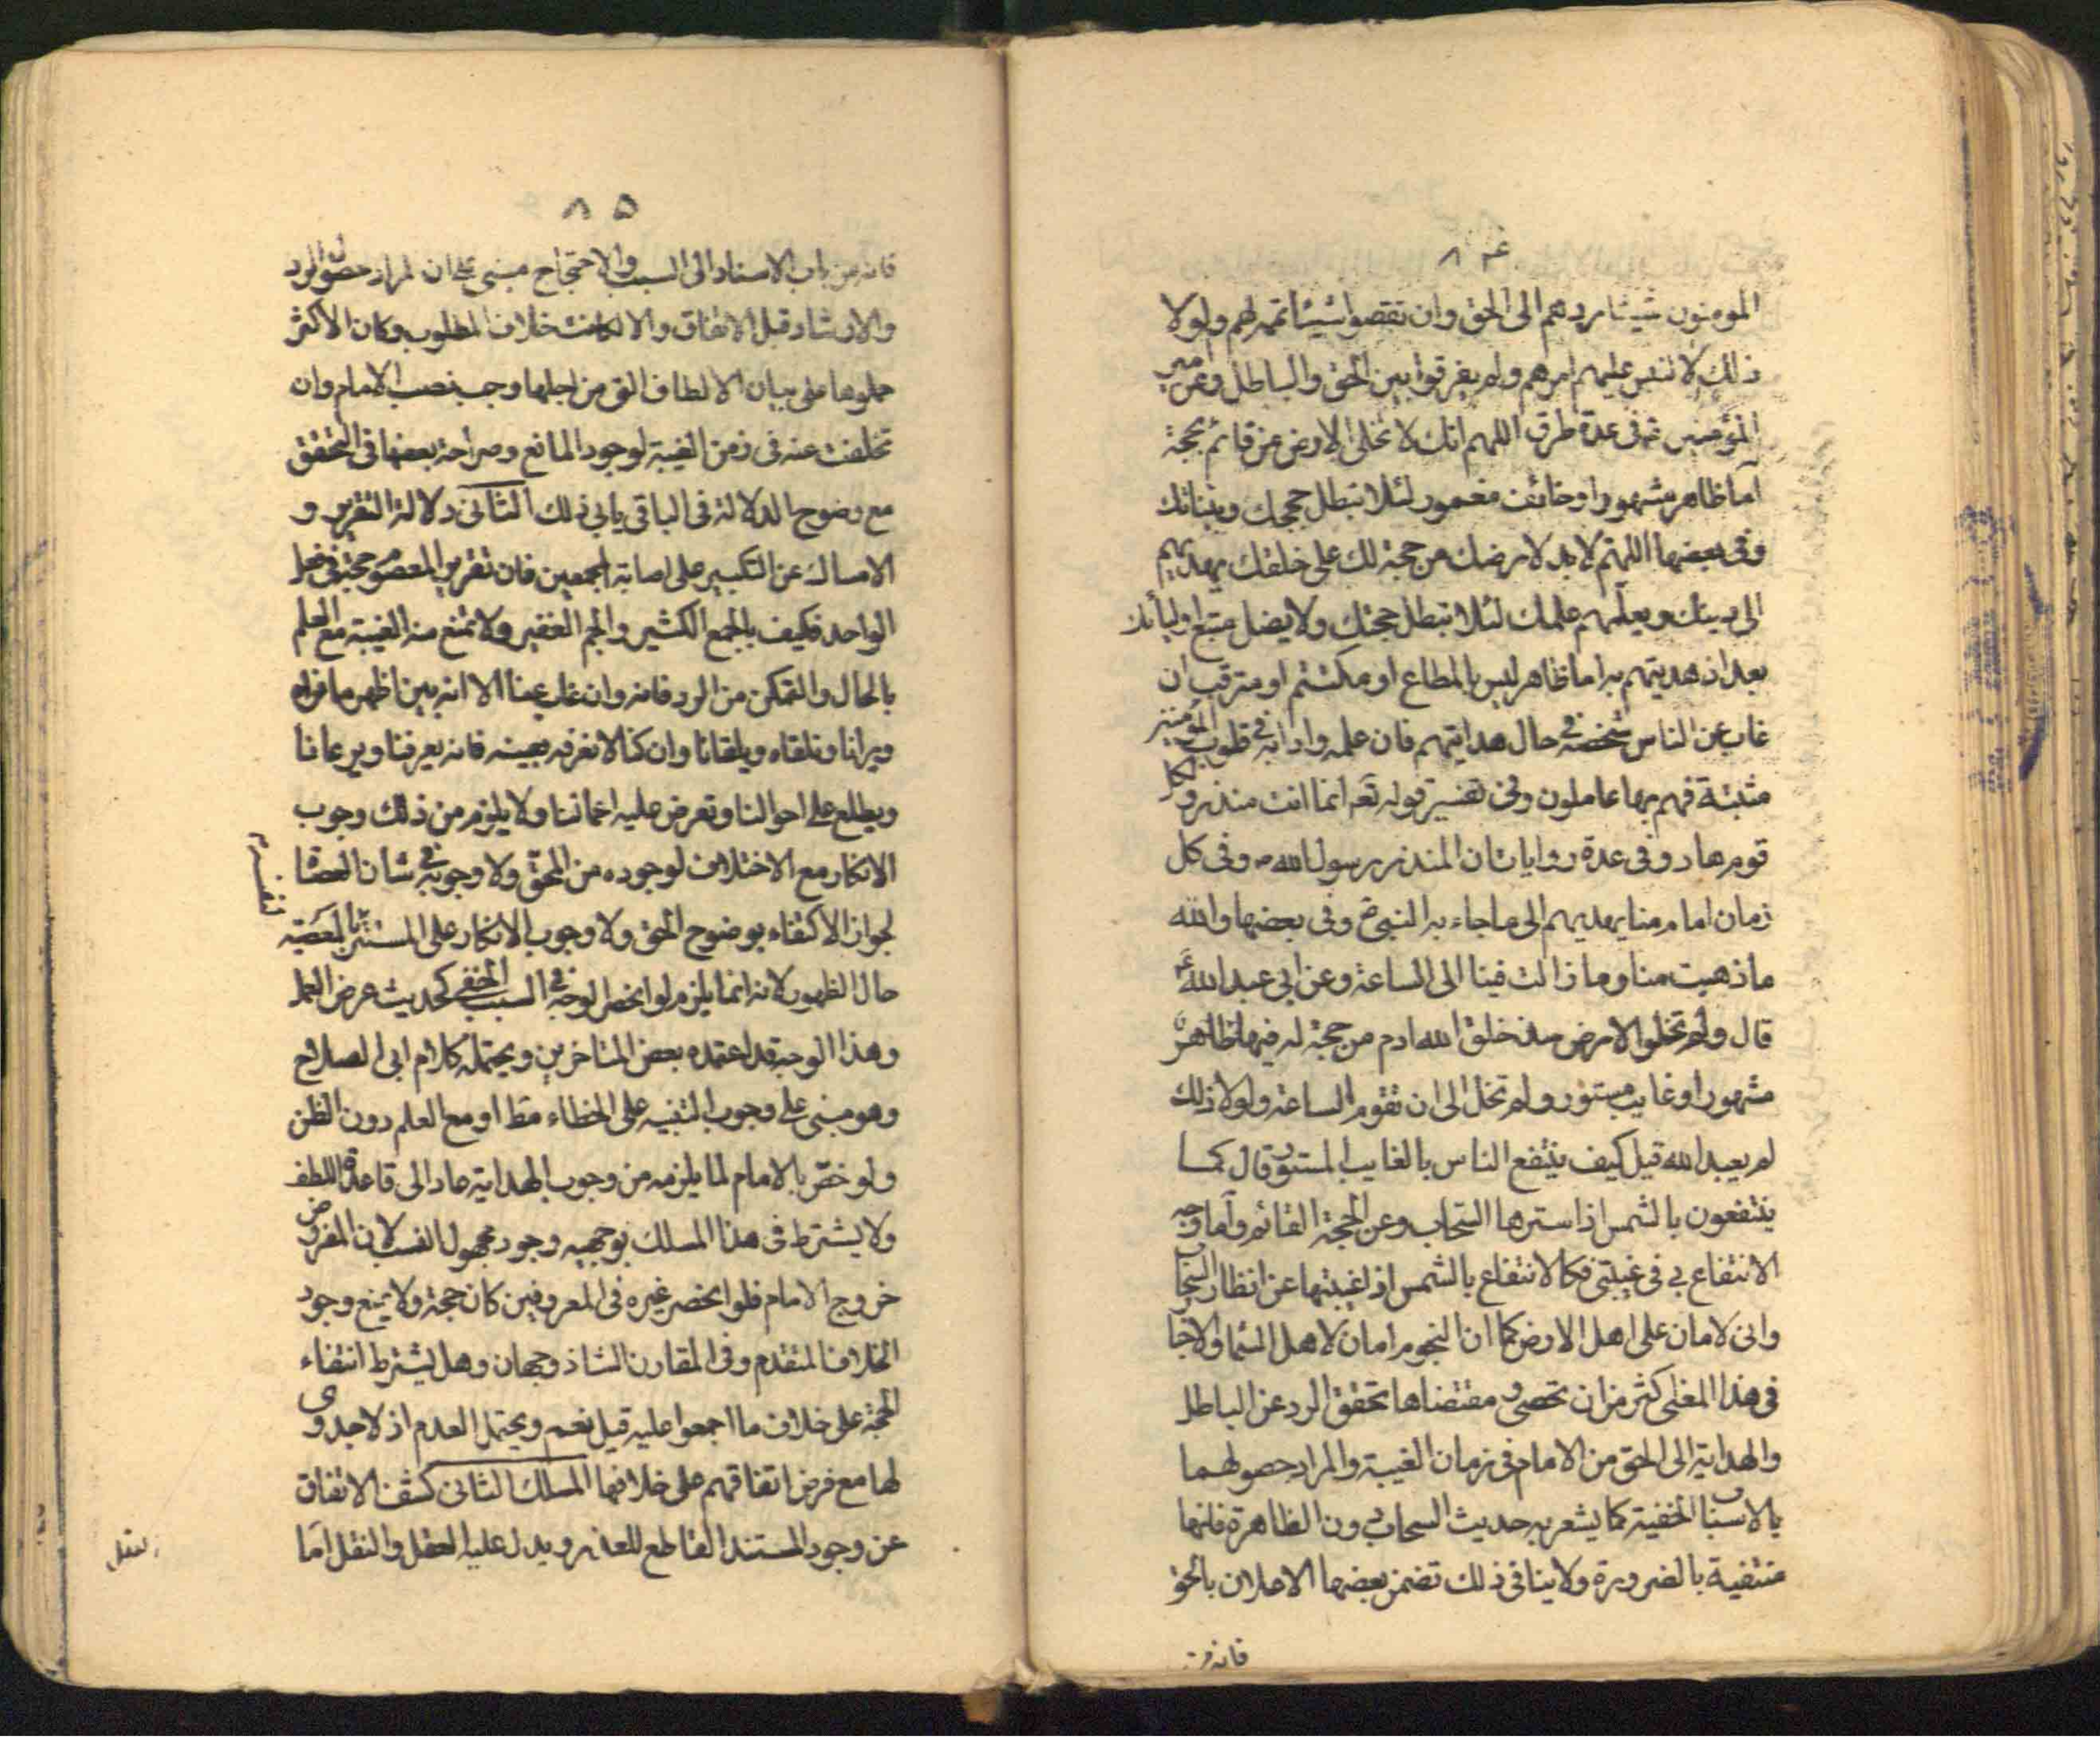 ٨٤
المومنون شيئا ردهم الى الحق وان نقصوا شيئا تممه لهم ولولا
ذلك لالتبس عليهم امرهم ولم يفرقوا بين الحق والباطل وعن امير
المؤمنين ع في عدة طرق اللهم انك لا تخلى الارض من قائم بحجة
اما ظاهر مشهور او خائف مغمور لئلا تبطل حججك وبيناتك
وفي بعضها اللهم لا بد لارضك من حجة لك على خلقك يهديهم
الى دينك ويعلمهم علمك لئلا تبطل حجتك ولا يضل متبع اوليائك
بعد اذ هديتهم به اما ظاهر ليس بالمطاع او مكتتم او مترقب ان
غاب عن الناس شخصه في حال هدايتهم فان علمه وادابه في قلوب المؤمنين
مثبتة فهم بها عاملون وفي تفسير قوله تعه انما انت منذر ولكل
قوم هاد وفي عدة روايات ان المنذر رسول الله ص وفي كل
زمان امام منا يهديهم الى ما جاء به النبي ص وفي بعضها والله
ما ذهبت منا وما زالت فينا الى الساعة وعن ابي عبد الله ع
قال ولم تخلو الارض منذ خلق الله ادم من حجة له فيها ظاهر
مشهور او غايب مستور ولم تخل الى ان تقوم الساعة ولولا ذلك
لم يعبد الله قيل كيف ينتفع الناس بالغايب المستور قال كما
ينتفعون بالشمس اذا سترها السحاب وعن الحجة القائم واما وجه
الانتفاع بي في غيبتي فكالانتفاع بالشمس اذا غيبتها عن انظار السحاب
واني لامان على اهل الارض كما ان النجوم امان لاهل السما والاخبا
في هذا المعنى اكثر من ان تحصى ومقتضاها تحقق الرد عن الباطل
والهداية الى الحق من الامام في زمان الغيبة والمراد حصولهما
بالاسباب الخفية كما يشعر به حديث السحاب دون الظاهرة فانها
منتفية بالضرورة ولا ينافي ذلك تضمن بعضها الاعلان بالحق
فانه من
٨٥
فانه من باب الاسناد الى السبب والاحتجاج مبني على ان المراد حصول الرد
والارشاد قبل الاتفاق والا لكانت خلاف المطلوب وكان الاكثر
حملوها على بيان الالطاف التي من اجلها وجب نصب الامام وان
تخلفت عنه في زمن الغيبة لوجود المانع وصراحة بعضها في التحقق
مع وضوح الدلالة في الباقي يابى ذلك الثاني دلالة التقرير و
الامساك عن النكير على اصابة المجمعين فان تقرير المعصوم حجة في فعل
الواحد فكيف بالجمع الكثير والجم الغفير ولا تمنع منه الغيبة مع العلم
بالحال والتمكن من الرد فانه وان غاب عينا الا انه بين اظهرنا نراه
ويرانا ونلقاه ويلقانا وان كنا لا نعرفه بعينه فانه يعرفنا ويرعانا
ويطلع على احوالنا وتعرض عليه اعمالنا ولا يلزم من ذلك وجوب
الانكار مع الاختلاف لوجوده من المحق ولا وجوبه في شان العصا
لجواز الاكتفاء بوضوح الحق ولا وجوب الانكار على المستتر بالمعصية
حال الظهور لانه انما يلزم لو انحصر الوجه في السبب الخفي كحديث عرض العمل
وهذا الوجه قد اعتمده بعض المتاخرين ويحتمله كلام ابي الصلاح
وهو مبني على وجوب التنبيه على الخطاء مط او مع العلم دون الظن
ولو خص بالامام لما يلزمه من وجوب الهداية عاد الى قاعدة اللطف
ولا يشترط في هذا المسلك بوجهيه وجود مجهول النسب لان المفروض
خروج الامام فلو انحصر غيره في المعروفين كان حجة ولا يمنع وجود
الخلاف المتقدم وفي المقارن الشاذ وجهان وهل يشترط انتفاء
الحجة على خلاف ما اجمعوا عليه قيل نعم ويحتمل العدم اذ لا جدوى
لها مع فرض اتفاقهم على خلافها المسلك الثاني كشف الاتفاق
عن وجود المستند القاطع للعذر ويدل عليه العقل والنقل اما